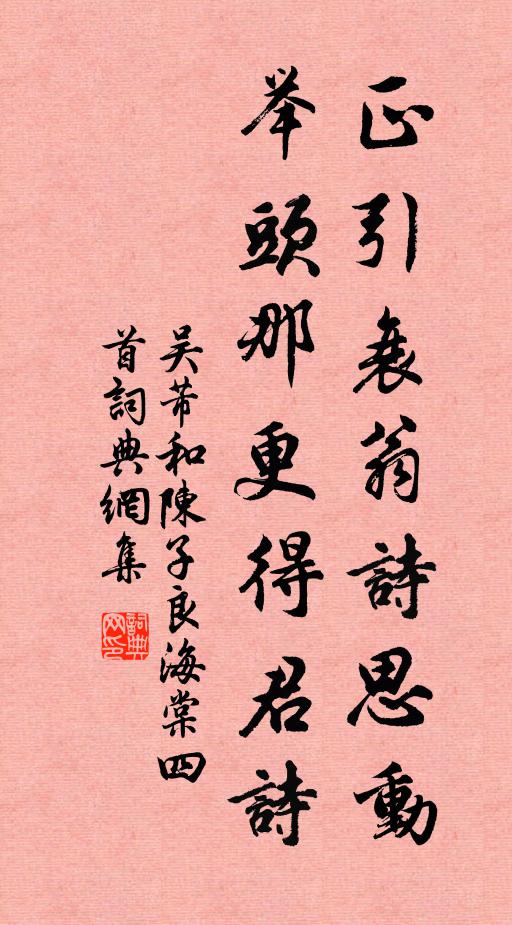 正引衰翁詩思動
举頭那更得君詩
吴芾和陳子良海棠四
首詞典網集
詞典
网印